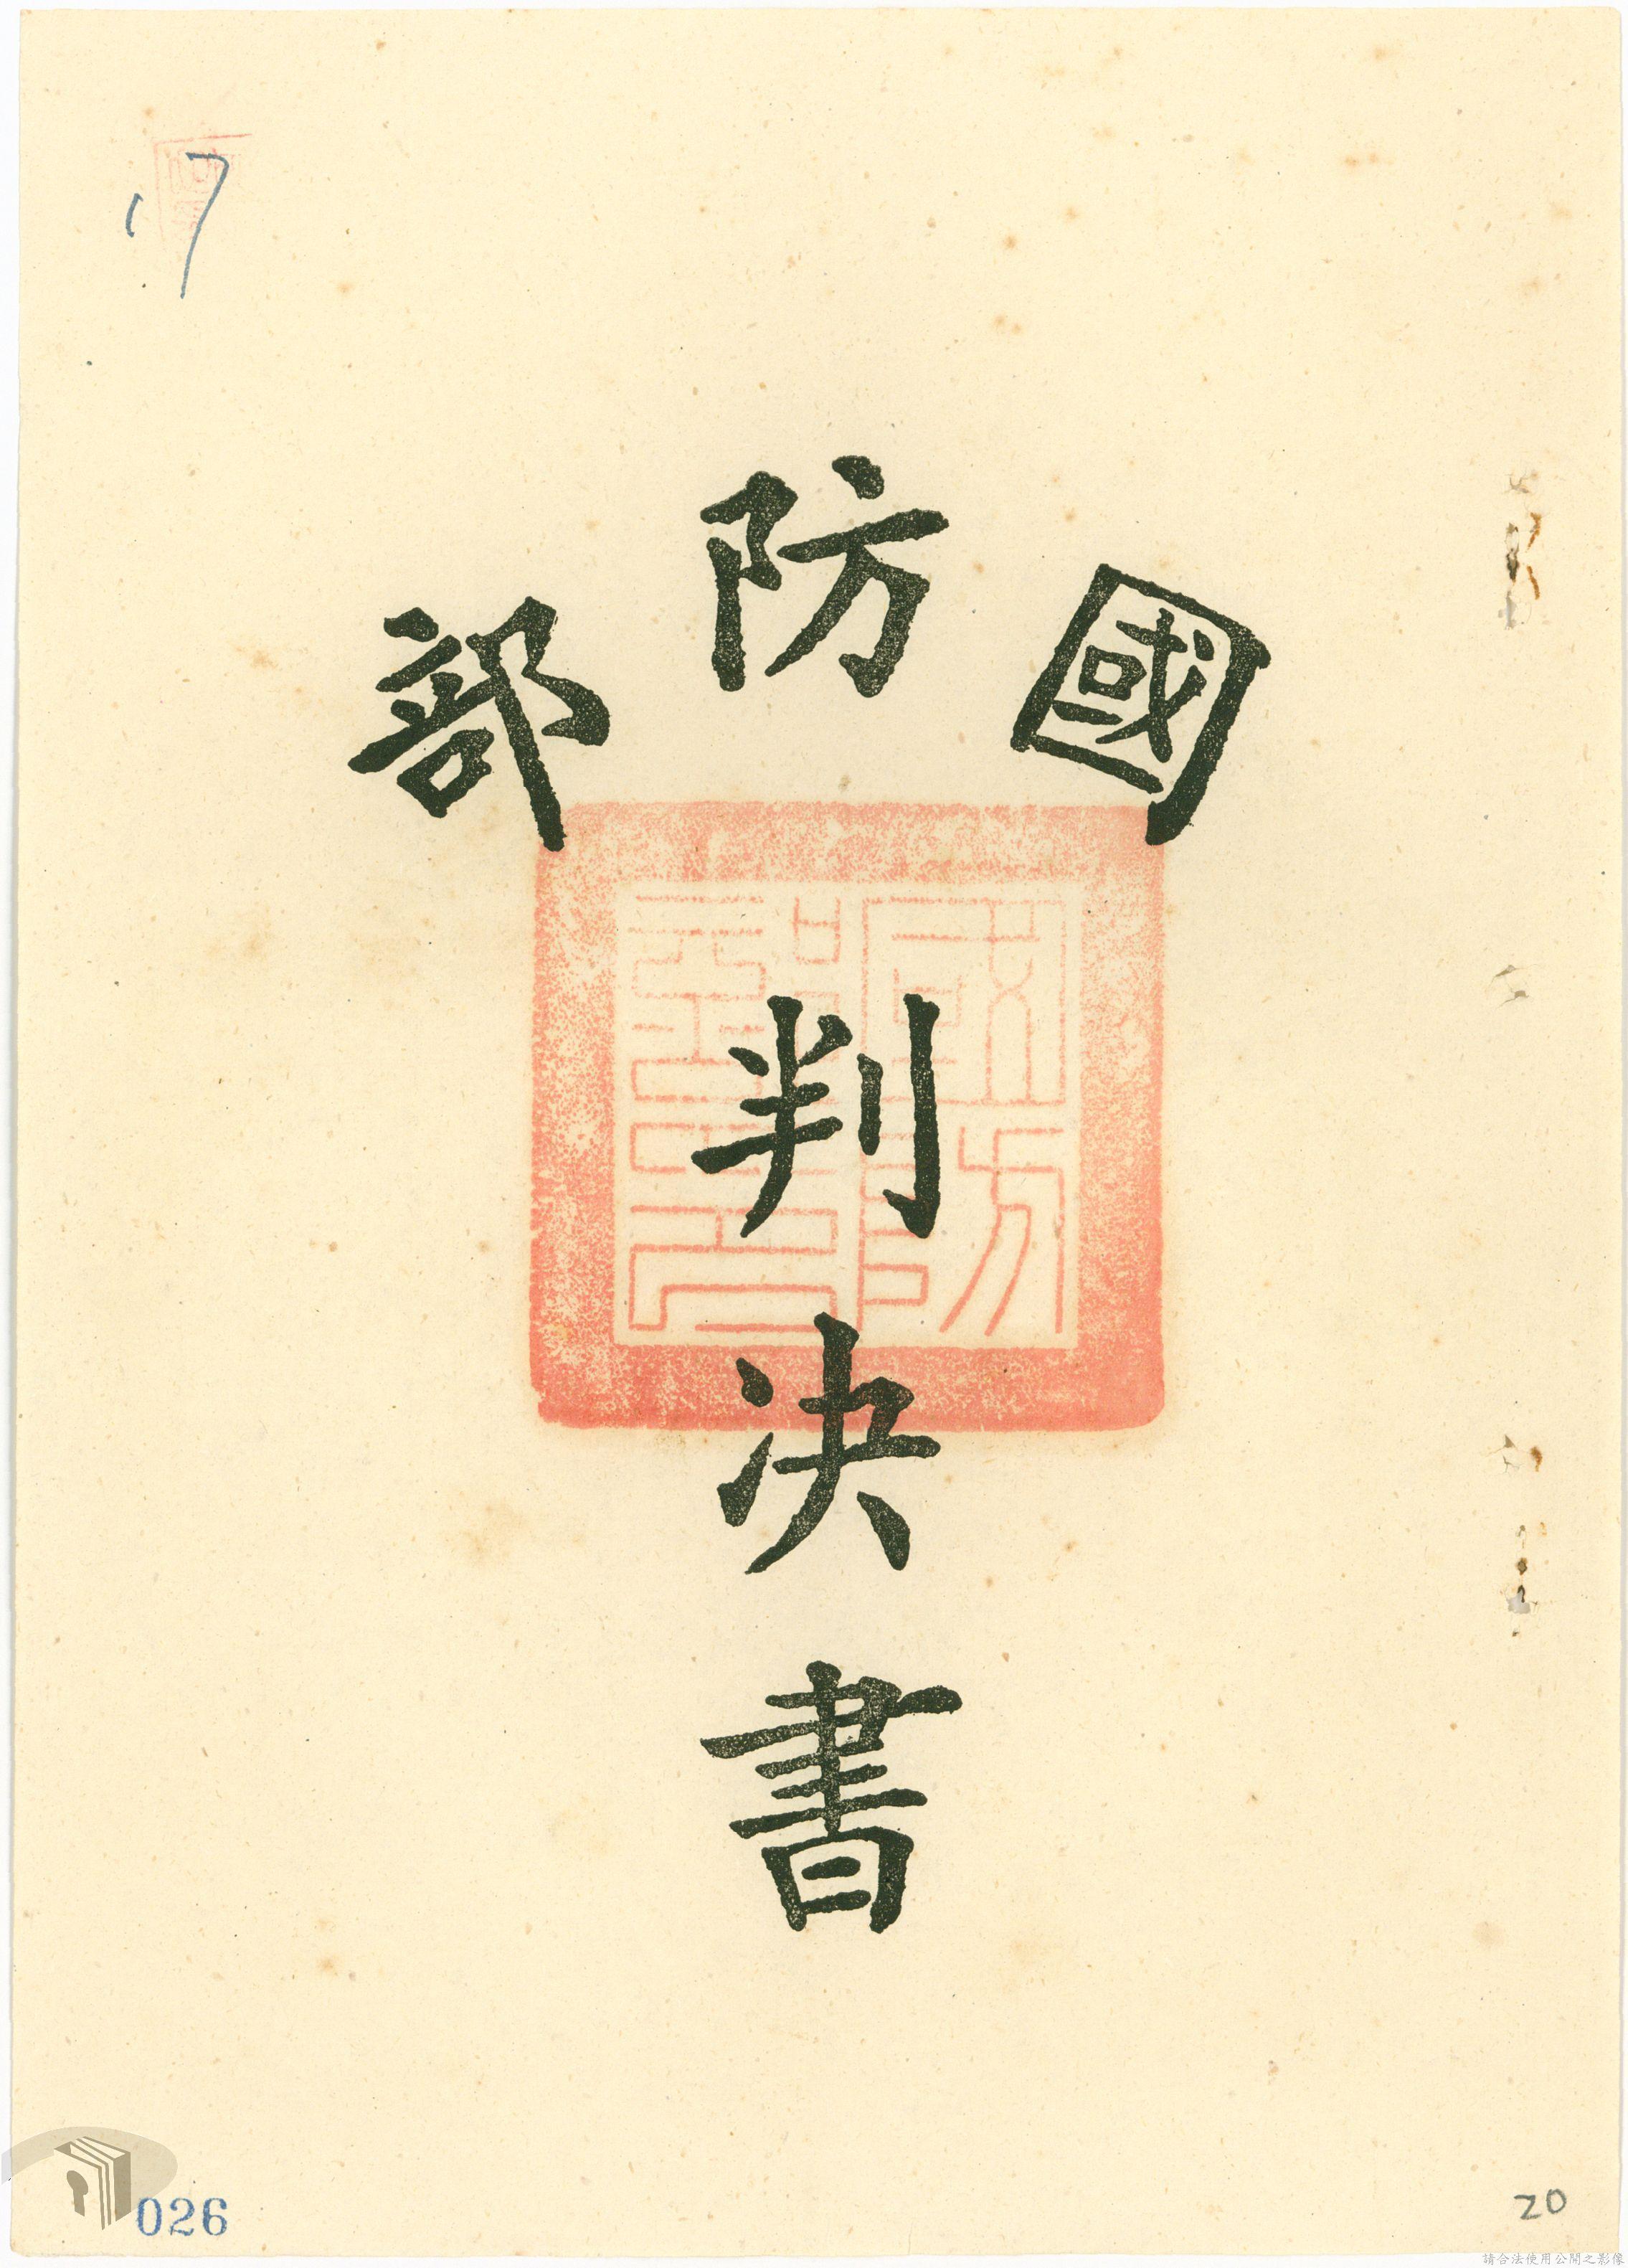 17
國防部
判決書
026
20
請合法使用公開之影像